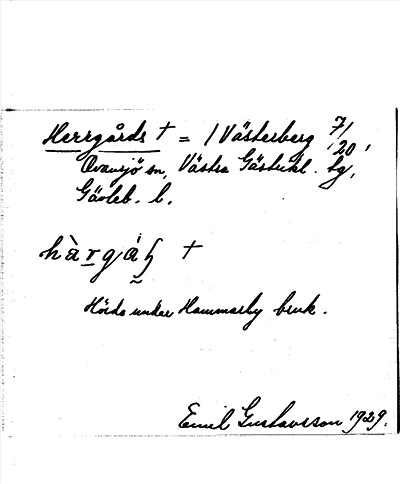 Herrgårds + = 1 Västerberg 7/20,
Ovansjö sn, Västra Gästrikl. tg,
Gävleb. l.
hàrgá +
Hörde under Hammarby bruk.
Emil Gustavsson 1929.